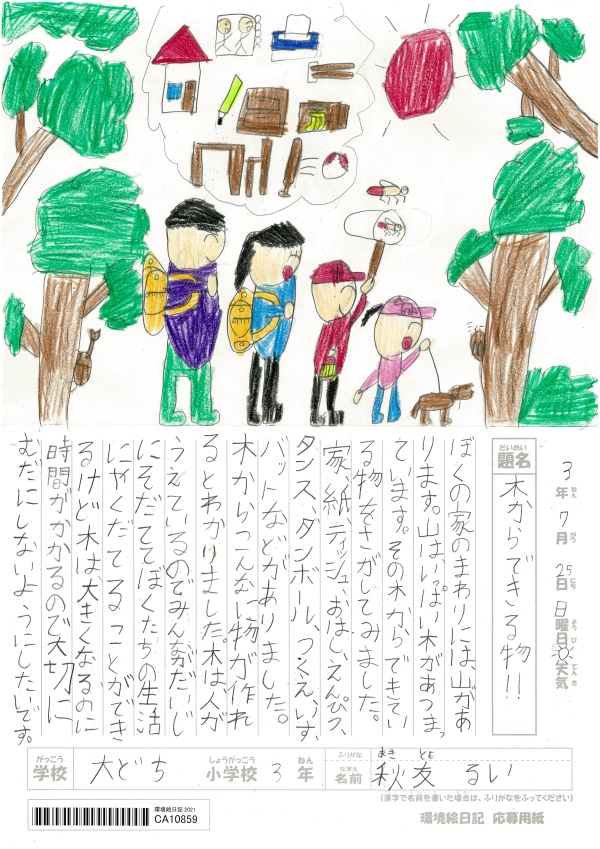 3年7月25日日曜日天気
ねん がつ にち よう び てんき
だいめい
題名
木からできる物!!
ぼくの家のまわりには、山があ
ります。山は、いっぱい木があつまっ
ています。その木からできてい
る物をさがしてみました。
家、紙、ティッシュ、おはし、えんぴつ、
タンス、ダンボール、つくえ、いす、
バットなどがありました。
木からこんない物が作れ
るとわかりました。木は人が
うえているのでみんながだいじ
にそだててぼくたちの生活
にやくだてることができ
るけど木は、大きくなるのに
時間がかかるので大切に
むだにしないようにしたいです。
がっこう しょうがっこう ねん ふりがな あき とも
学校 大どち 小学校 3 年 なまえ 名前 秋友 るい
(漢字で名前を書いた場合は、ふりがなをふってください)
環境絵日記 2021
CA10859
環境絵日記 応募用紙